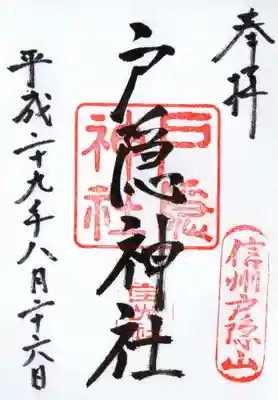 奉拝
信州戸隠山
戸隠神社
戸隠
神社
宝光社
平成二十九年八月二十六日